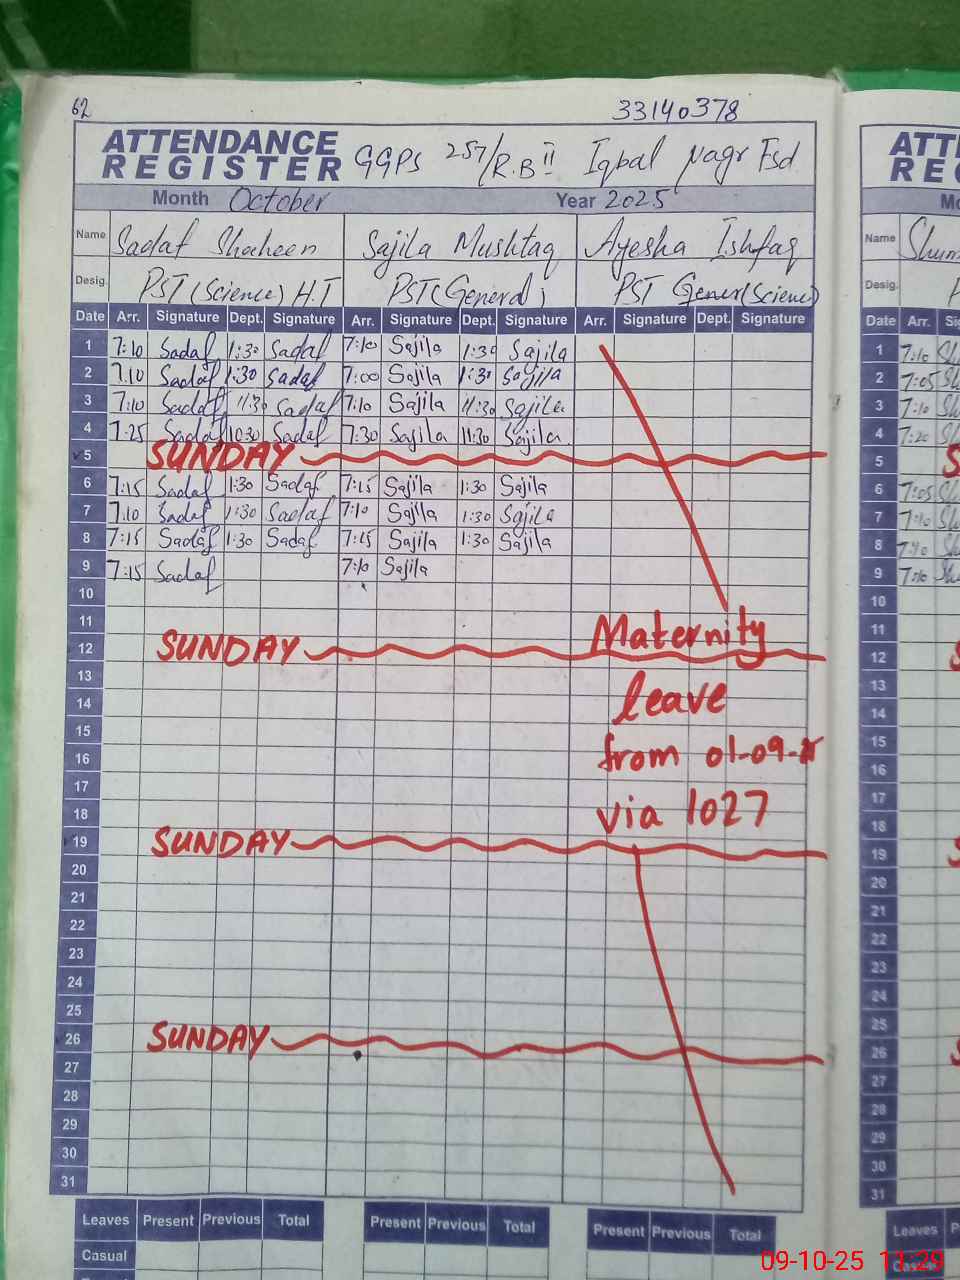 62
33140378
ATTENDANCE REGISTER GGPS 257/R.B II Iqbal Nagr Fsd.
Month October Year 2025
Name Sadaf Shaheen Sajila Mushtaq Ayesha Ishfaq Name
Desig. PST (Science) H.T PST (General) PST Gener(Science) Desig.
Date Arr. Signature Dept. Signature Arr. Signature Dept. Signature Arr. Signature Dept. Signature Date Arr.
1 7:10 Sadaf 1:30 Sadaf 7:10 Sajila 1:30 Sajila 1 7:10
2 7:10 Sadaf 1:30 Sadaf 7:00 Sajila 1:30 Sajila 2 7:05
3 7:10 Sadaf 11:30 Sadaf 7:10 Sajila 11:30 Sajila 3 7:10
4 7:25 Sadaf 10:30 Sadaf 7:30 Sajila 11:30 Sajila 4 7:20
5 SUNDAY 5
6 7:15 Sadaf 1:30 Sadaf 7:15 Sajila 1:30 Sajila 6 7:05
7 7:10 Sadaf 1:30 Sadaf 7:10 Sajila 1:30 Sajila 7 7:10
8 7:15 Sadaf 1:30 Sadaf 7:15 Sajila 1:30 Sajila 8
9 7:15 Sadaf 7:10 Sajila 9 7:10
10 10
11 Maternity 11
12 SUNDAY 12
13 13
14 leave 14
15 15
16 from 01-09-25 16
17 17
18 via 1027 18
19 SUNDAY 19
20 20
21 21
22 22
23 23
24 24
25 25
26 SUNDAY 26
27 27
28 28
29 29
30 30
31 31
Leaves Present Previous Total Present Previous Total Present Previous Total Leaves
Casual
09-10-25 11:29